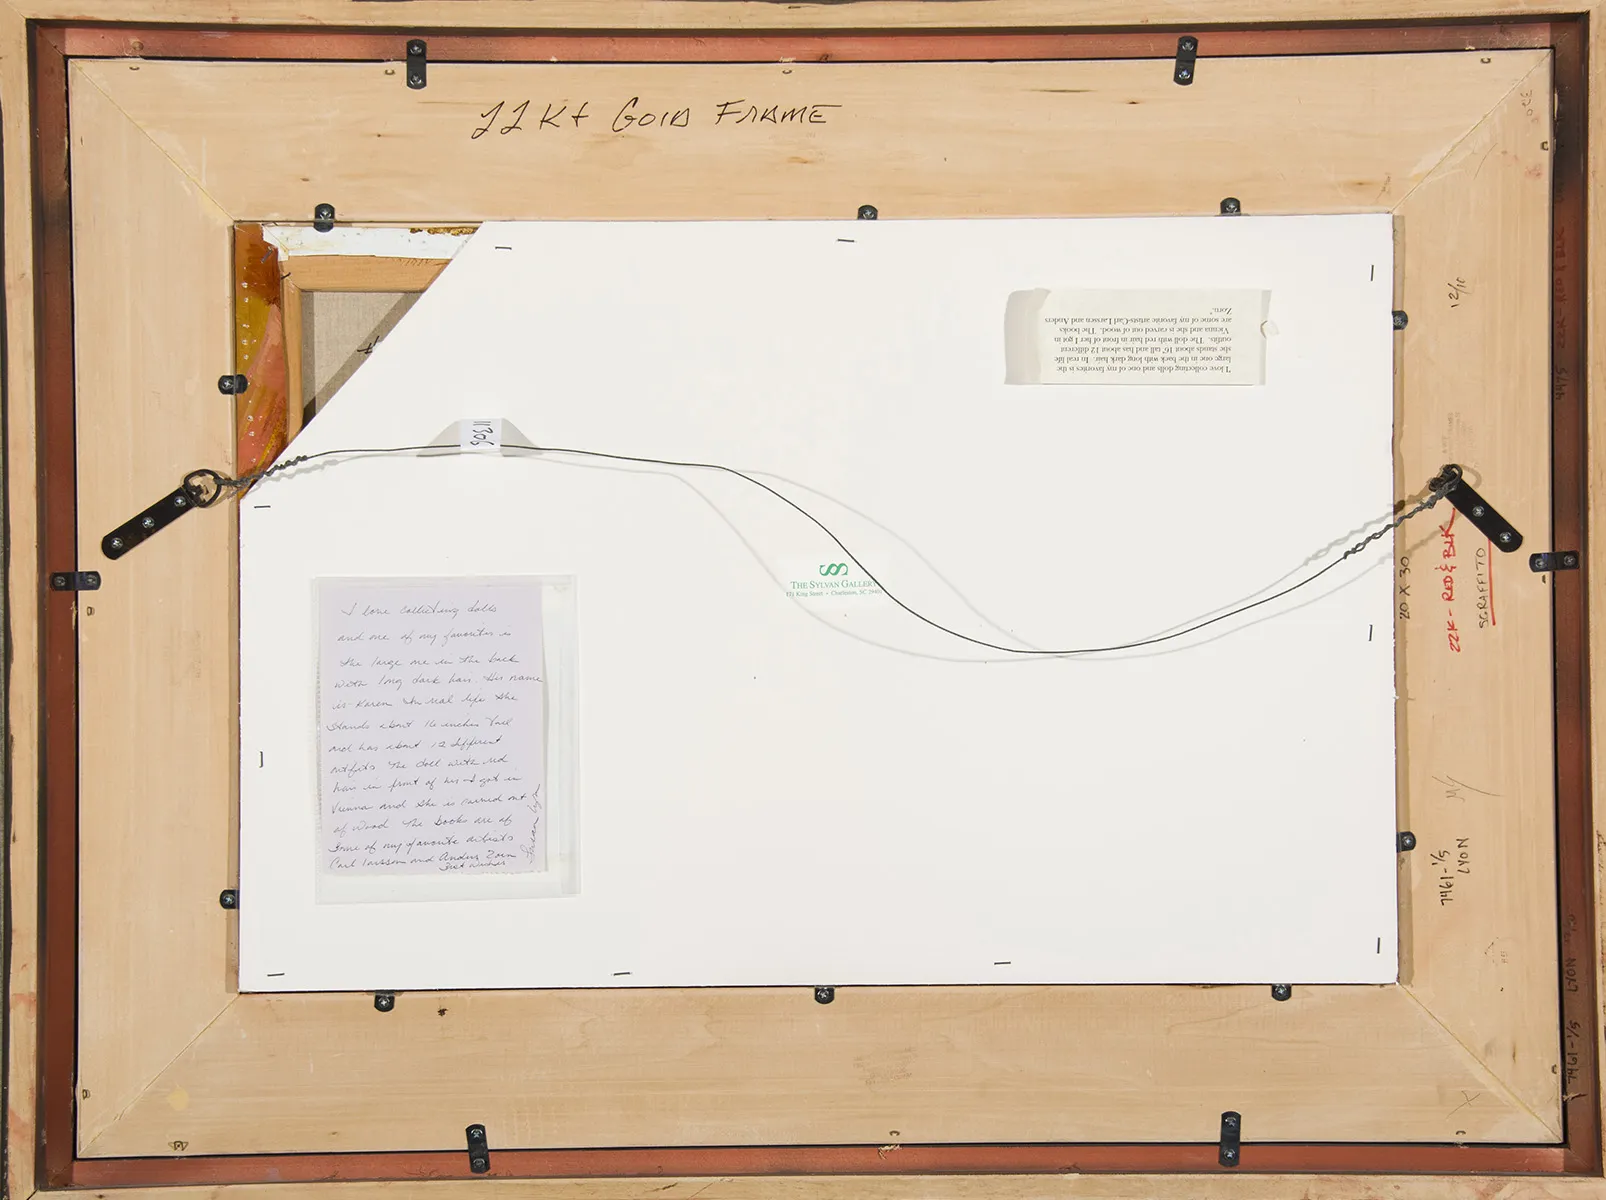 22 Kt GOLD FRAME
"I love collecting dolls and one of my favorites is the
large one in the back with long dark hair. In real life
she stands about 16" tall and has about 12 different
outfits. The doll with red hair in front of her I got in
Vienna and she is carved out of wood. The books
are some of my favorite artists-Carl Larssen and Anders
Zorn."
11306
THE SYLVAN GALLERY
171 King Street • Charleston, SC 29401
I love collecting dolls
and one of my favorites is
the large one in the back
with long dark hair. Her name
is Karen In real life she
stands about 16 inches tall
and has about 12 different
outfits The doll with red
hair in front of her I got in
Vienna and she is carved out
of wood The books are of
some of my favorite artists
Carl Larsson and Anders Zorn
Best Wishes
Susan Lyon
12/10
20 X 30
22K - RED & BLK
SGRAFFITO
7461-1/5
LYON
4975 22K - RED & BLK
7461-1/5 LYON